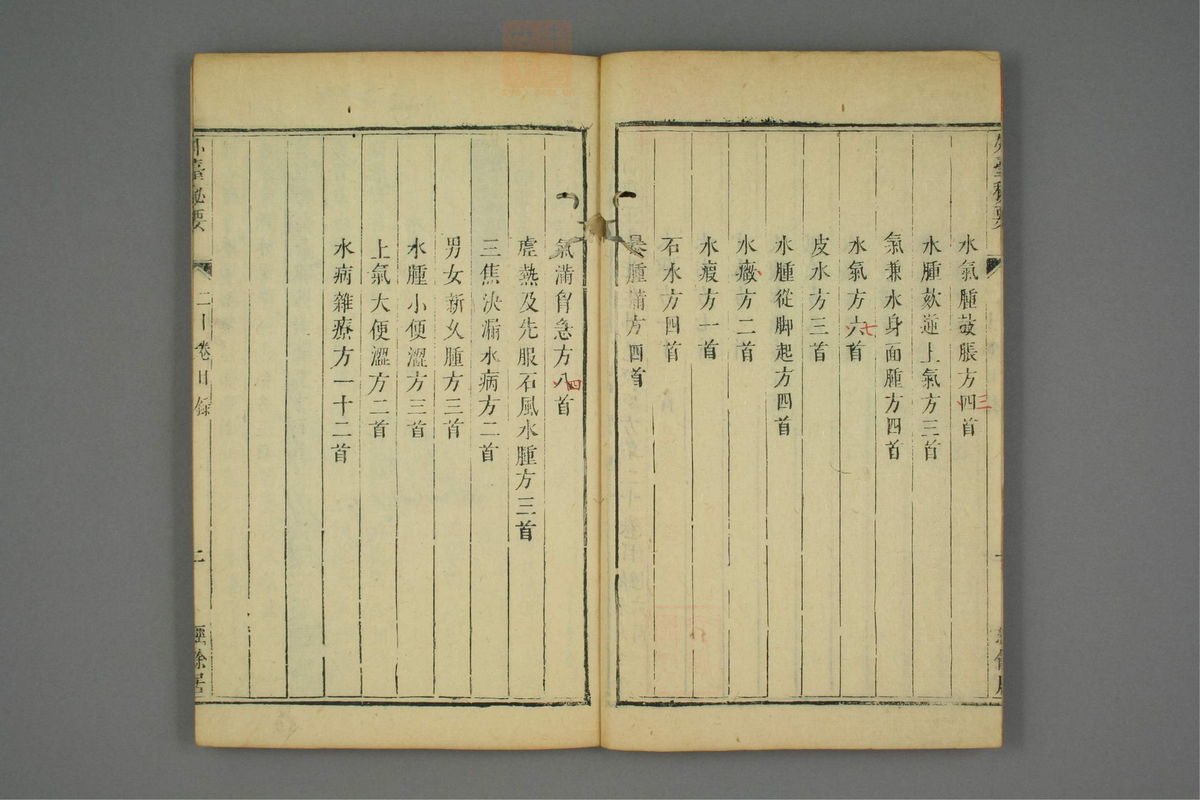 水氣腫鼓脹方四首
三
水腫欬逆上氣方三首
氣兼水身面腫方四首
水氣方六首
七
皮水方三首
水腫從脚起方四首
水癥方二首
水瘕方一首
石水方四首
暴腫滿方四首
氣滿胷急方八首
四
虛熱及先服石風水腫方三首
三焦決漏水病方二首
男女新久腫方三首
水腫小便澀方三首
上氣大便澀方二首
水病雜療方一十二首
外臺秘要
二十卷目錄
二
經餘居